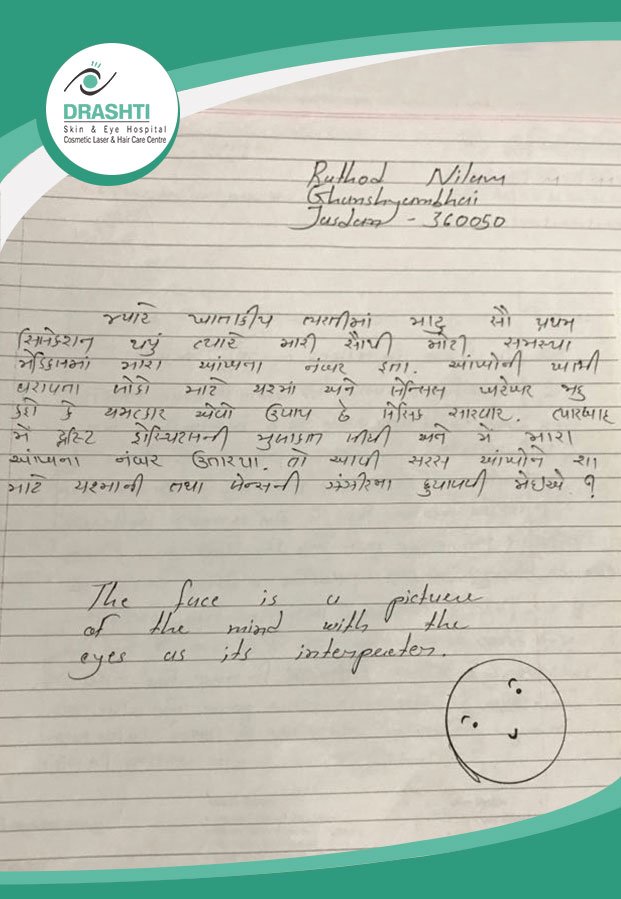 DRASHTI
Skin & Eye Hospital
Cosmetic Laser & Hair Care Centre
Rathod Nilam
Ghanshyambhai
Jasdan - 360050
જ્યારે ખાતાકીય ભરતીમાં મારૂ સૌ પ્રથમ
સિલેકશન થયું ત્યારે મારી સૌથી મોટી સમસ્યા
મેડિકલમાં મારા આંખના નંબર હતા. આંખોની ખામી
ધરાવતા લોકો માટે ચશ્માં અને લેન્સિસ ખરેખર
કહો કે ચમત્કાર એવો ઉપાય છે લેસિક સારવાર. ત્યારબાદ
મેં દ્રષ્ટિ હોસ્પિટલની મુલાકાત લીધી અને મેં મારા
આંખના નંબર ઉતારયા. તો આવી સરસ આંખોને શા
માટે ચશ્માની તથા લેન્સની જંજીરમા છુપાવવી જોઇએ ?
The face is a picture
of the mind with the
eyes as its interpeter.